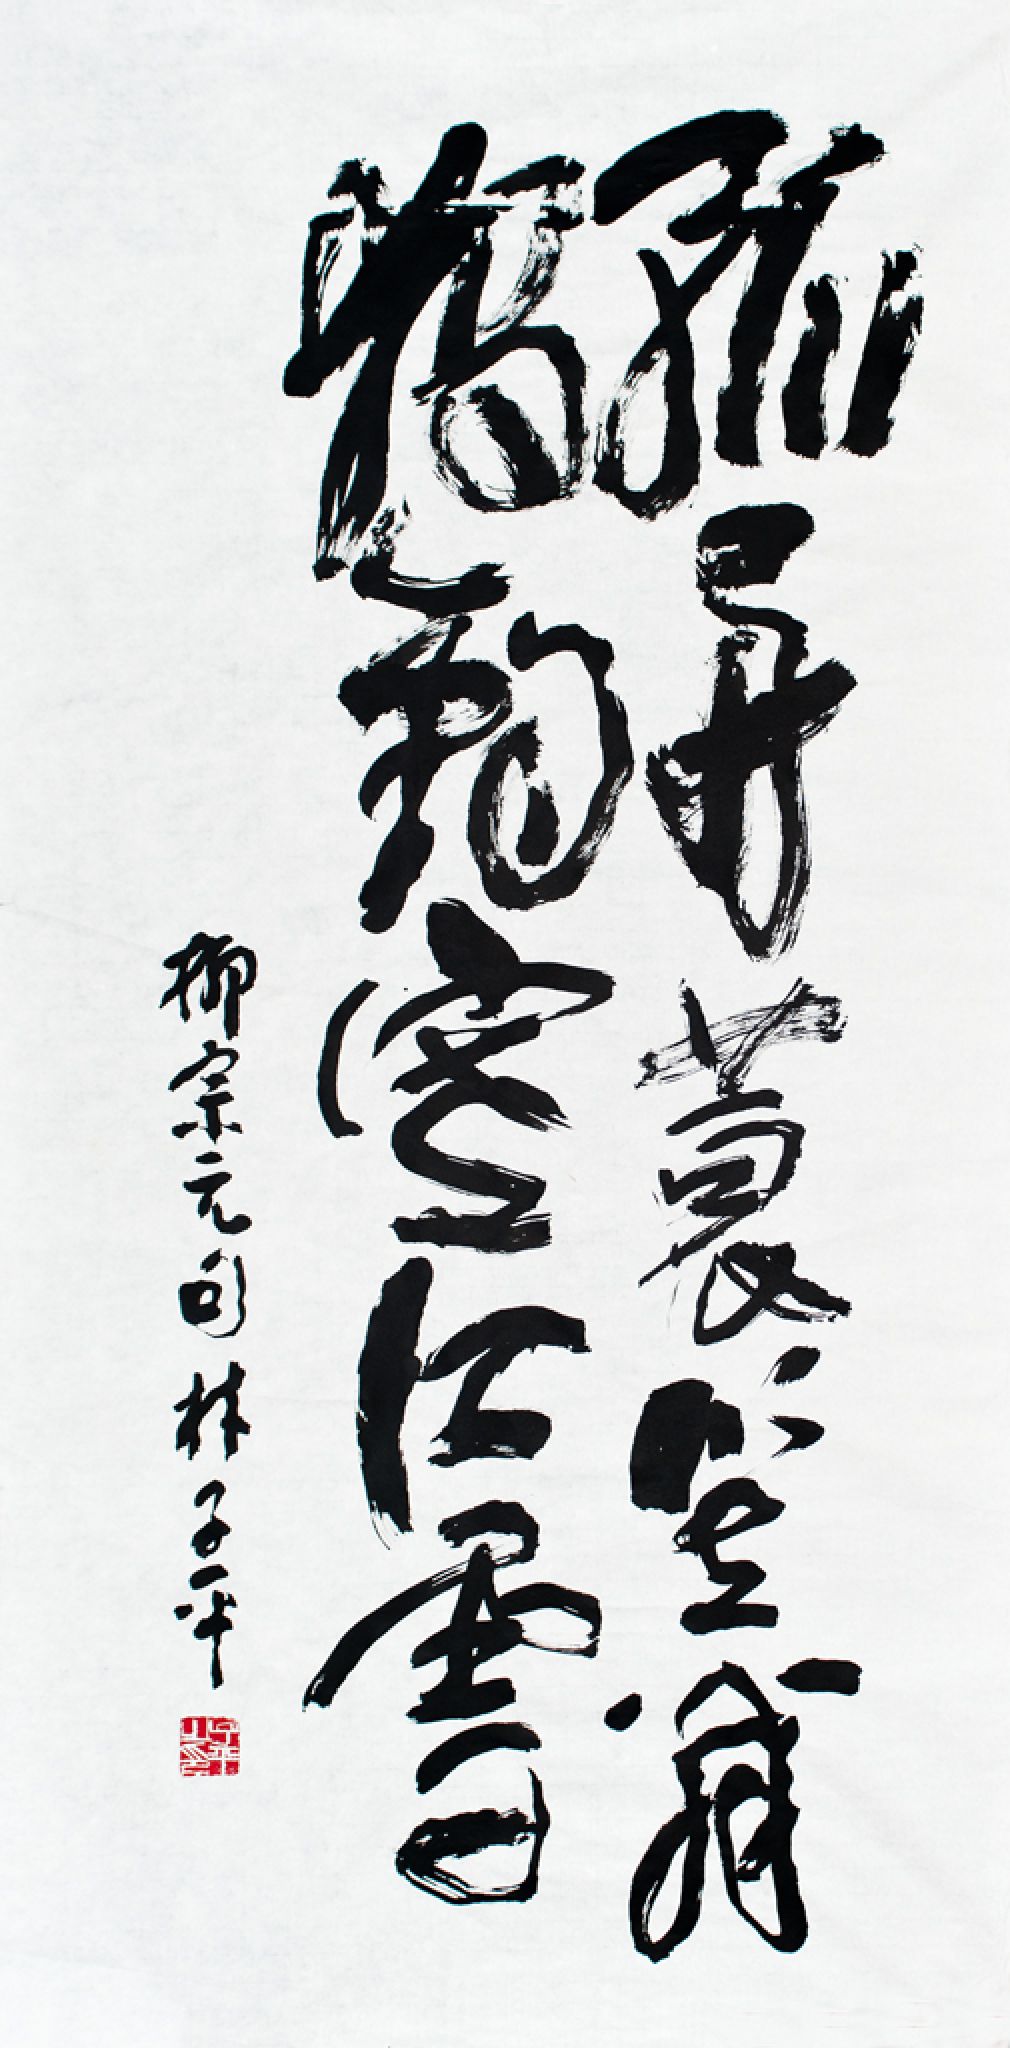 孤舟蓑笠翁
獨釣寒江雪
柳宗元句 林子平